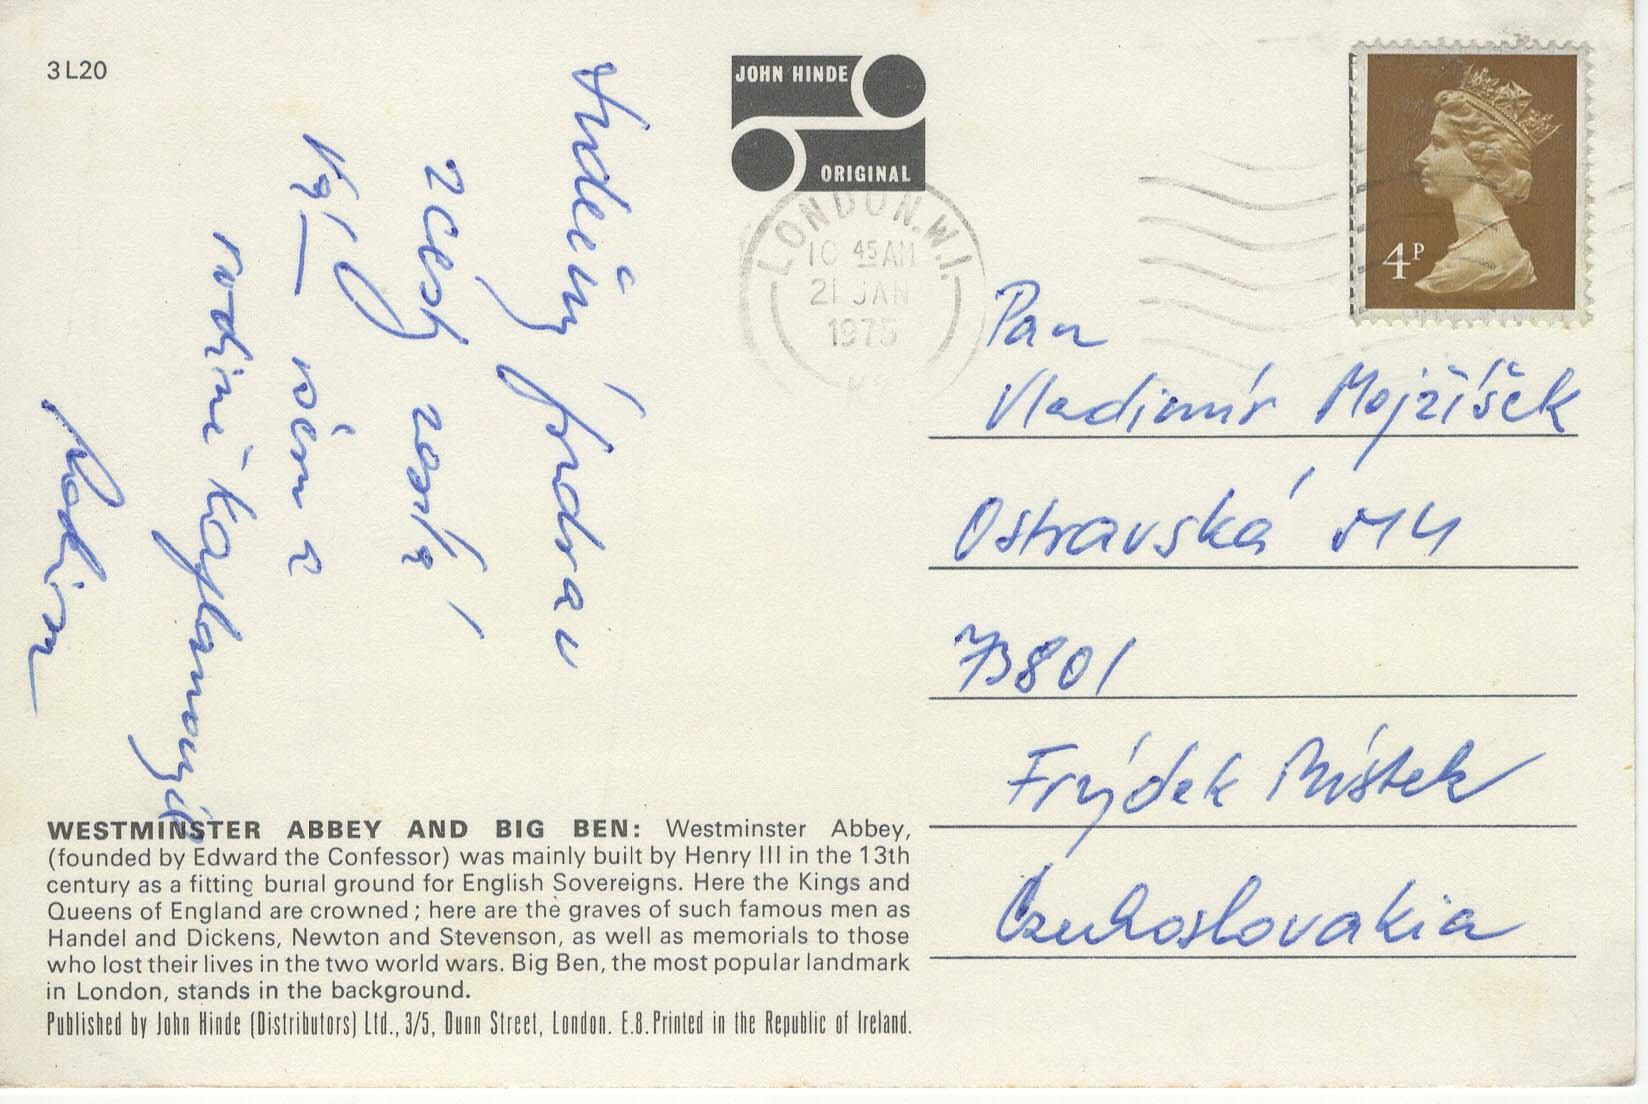 3L20
JOHN HINDE
ORIGINAL
LONDON. W.1.
10 45 AM
21 JAN
1975
4P
Srdečný pozdrav
z cesty zasílá
Vám a
rodině Kaflanových
Radim
Pan
Vladimír Mojžíšek
Ostravská
73801
Frýdek Místek
Czechoslovakia
WESTMINSTER ABBEY AND BIG BEN: Westminster Abbey,
(founded by Edward the Confessor) was mainly built by Henry III in the 13th
century as a fitting burial ground for English Sovereigns. Here the Kings and
Queens of England are crowned; here are the graves of such famous men as
Handel and Dickens, Newton and Stevenson, as well as memorials to those
who lost their lives in the two world wars. Big Ben, the most popular landmark
in London, stands in the background.
Published by John Hinde (Distributors) Ltd., 3/5, Dunn Street, London. E.8. Printed in the Republic of Ireland.